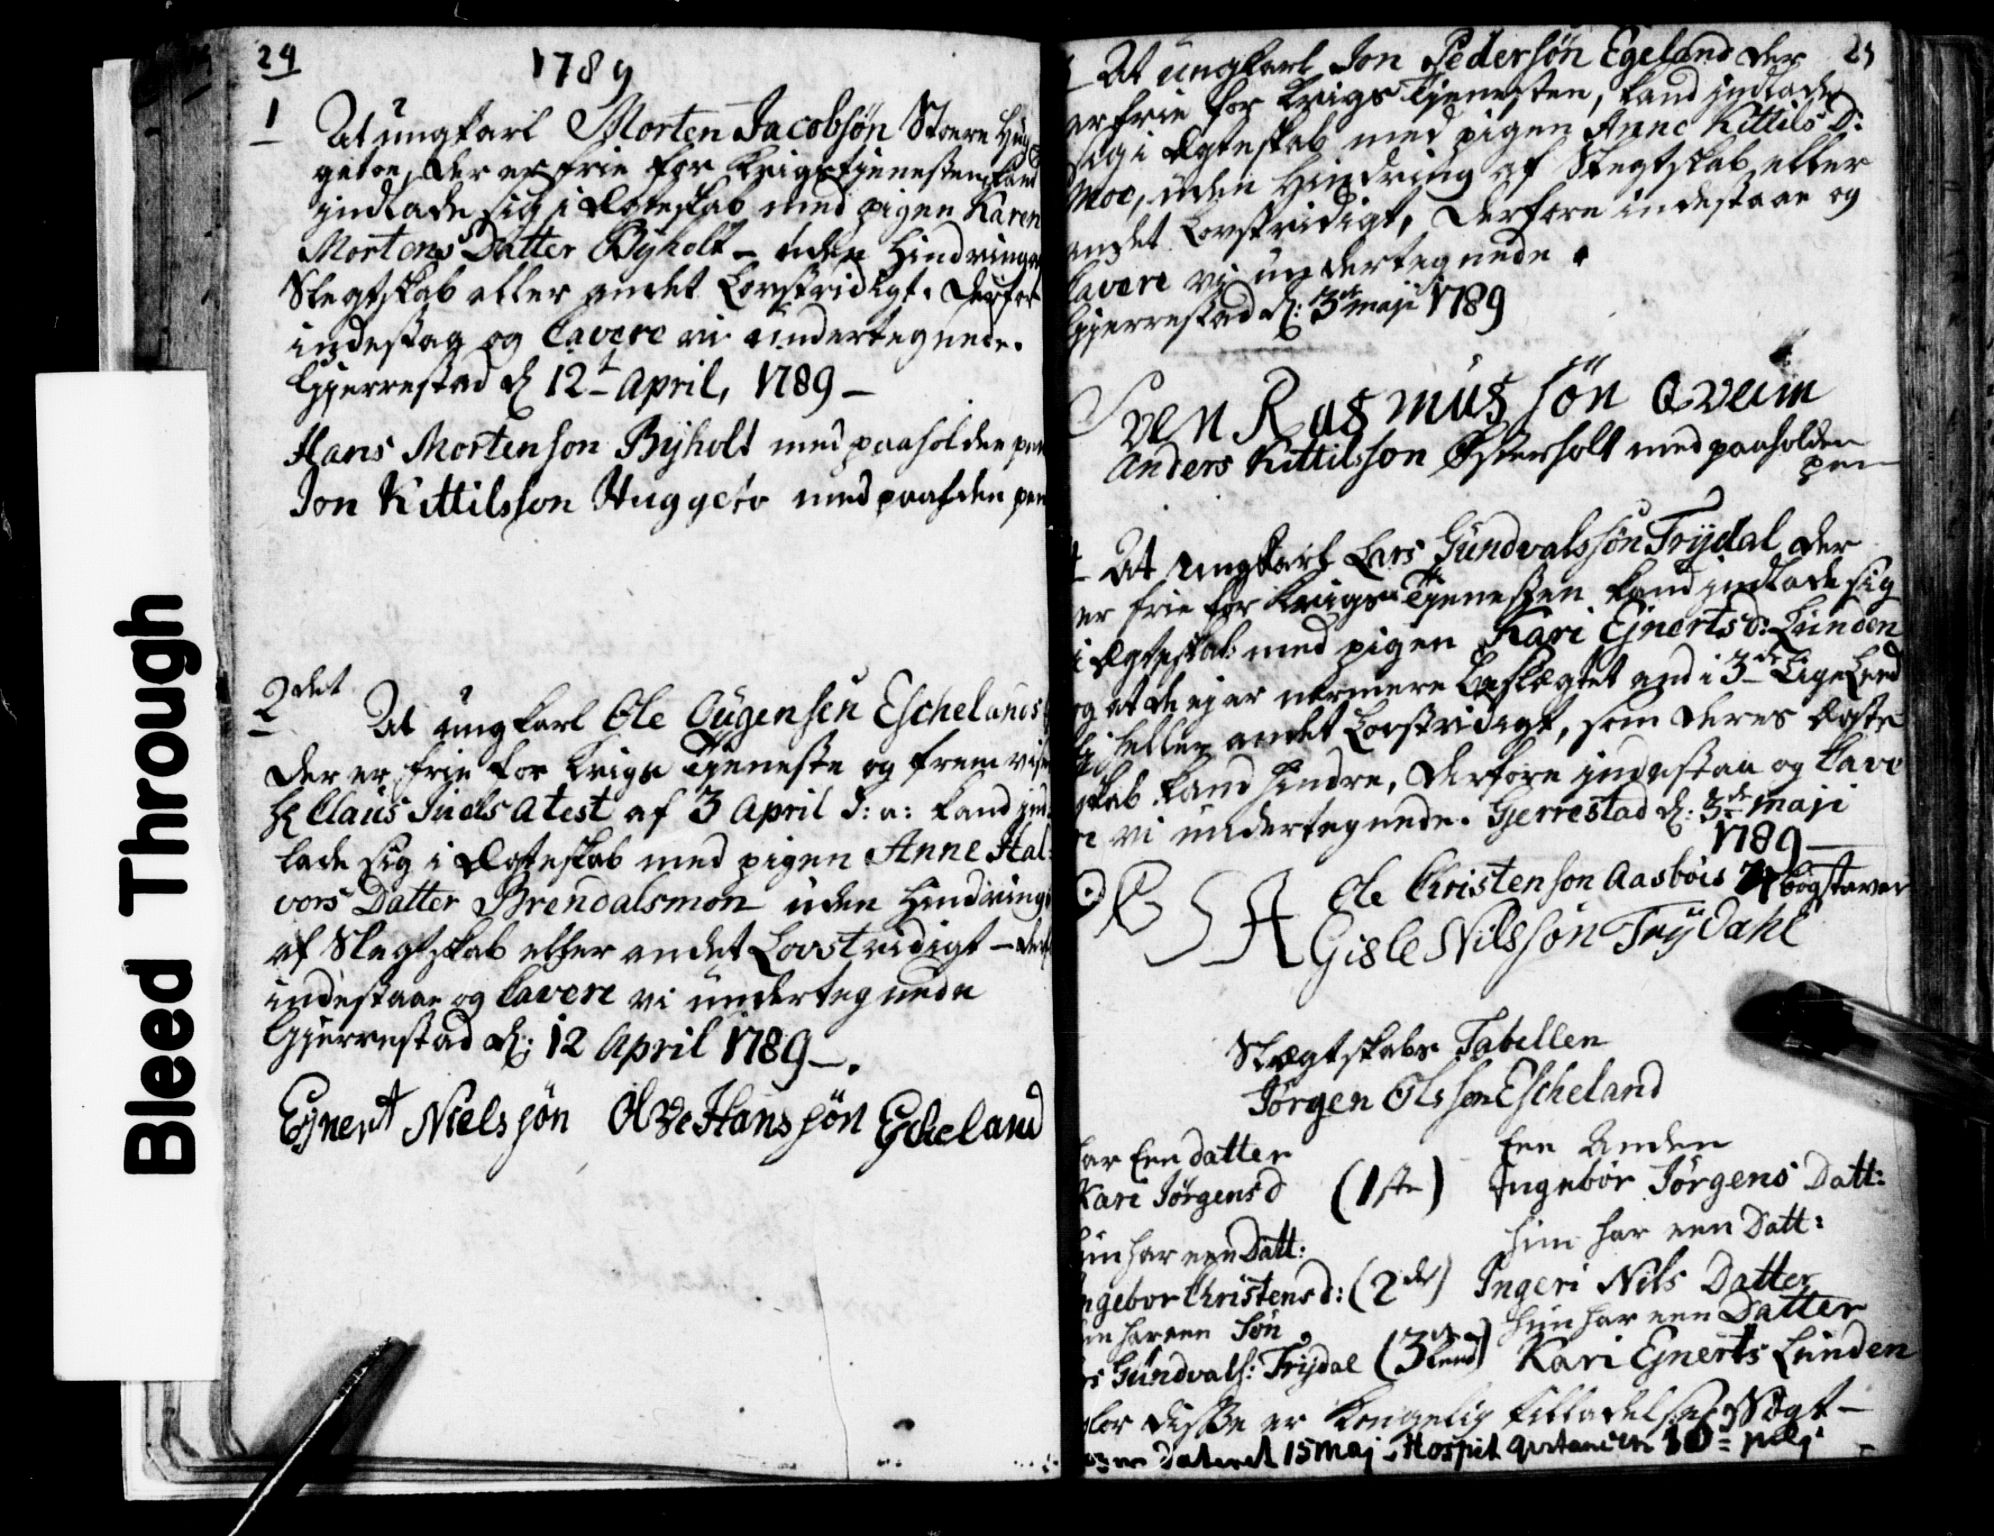 24
1789
1
At ungkarl Morten Jacobsøn Stoere Hug
getoe, der er frie for Krigstienesten, kand
indlade sig i Ægteskab med pigen Karen
Mortens Datter Byholt - uden Hindring
Slegtskab eller andet Lovstridigt. Derfor
indestaa og Cavere vi undertegnede.
Gjerrestad d 12t April, 1789 -
Hans Mortenson Byholt med paaholden pen
Jon Kittilsson Huggeto med paaholden pen
2det
At ungkarl Ole Øygensen Eschelands
der er frie for Krigs Tjeneste og frem viser
H Claus Juels Atest af 3 April d: a: kand ind:
lade sig i Ægteskab med pigen Anne Hal:
vors Datter Brendalsmon uden Hindring
af Slegtskab eller andet Lovstridigt - derfor
indestaae og Cavere vi undertegnede
Gjerrestad d: 12 April 1789 -.
Ejnert Nielssøn Olve Hanssøn Escheland
25
At ungkarl Jon Pedersøn Egeland der
er frie for Krigs Tjenesten, kand indlade
sig i Ægteskab med pigen Anne Kittils D:
Moe, uden Hindring af Slegtskab eller
andet Lovstridigt, Derfore indestaae og
Cavere vi undertegnede.
Gjerrestad d: 3de maji 1789
Sven Rasmussøn Qveim
Anders Kittilsson Østerholt med paaholden
pen
4 At ungkarl Lars Gundvalssøn Trydal der
er frie for Krigs Tjenesten kand indlade sig
i Ægteskab med pigen Kari Ejnerts D: Lunden
og at de ej er nærmere beslægtet end i 3de Lige Leed
Ej heller andet Lovstridigt, som deres Ægte
skab kand hindre, derfore indestaa og Cave
re vi undertegnede. Gjerrestad d: 3de maji
1789 -
Ole Christenson Aasbøis bogstaver
Gisle Nilssøn Trydahl
Slægtskabs Tabellen
Jørgen Olssen Escheland
har Een datter Een Anden
Kari Jørgensd (1ste) Ingebor Jørgens Datt:
hun har een Datt: hun har een Datt:
Ingebor Christensd: (2de) Ingeri Nils Datter
hun har een Søn hun har een Datter
Lars Gundvals: Trydal (3de Leed) Kari Ejnerts Lunden
for disse er Kongelig tilladelse Søgt -
Dateret 15 maj. Hospit. Qvitancien 10
Bleed Through